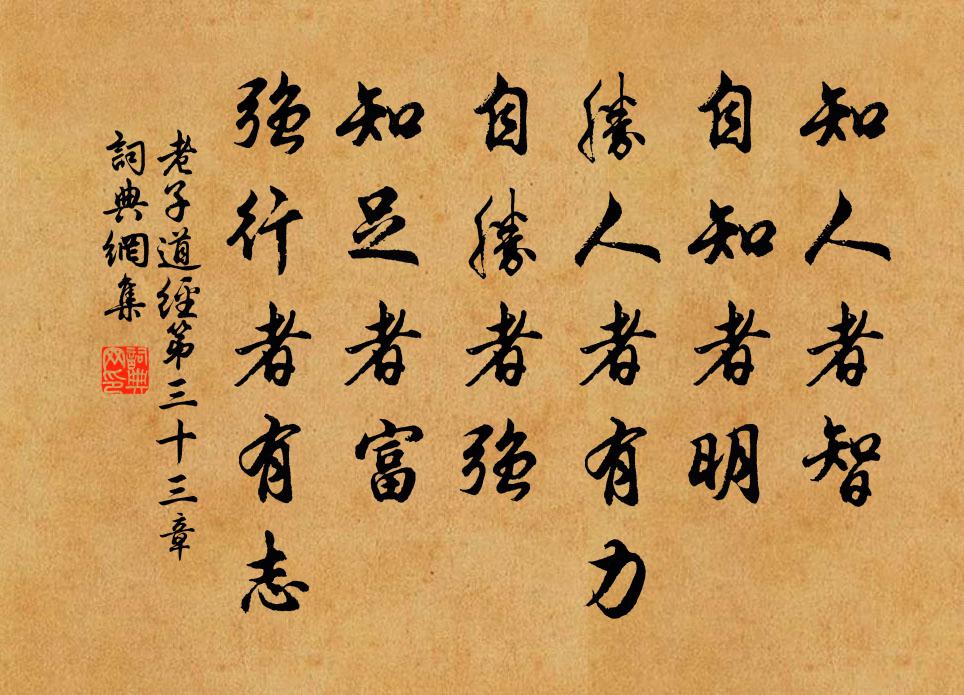 知人者智
自知者明
勝人者有力
自勝者強
知足者富
強行者有志
老子道經第三十三章
詞典網集
詞典网印